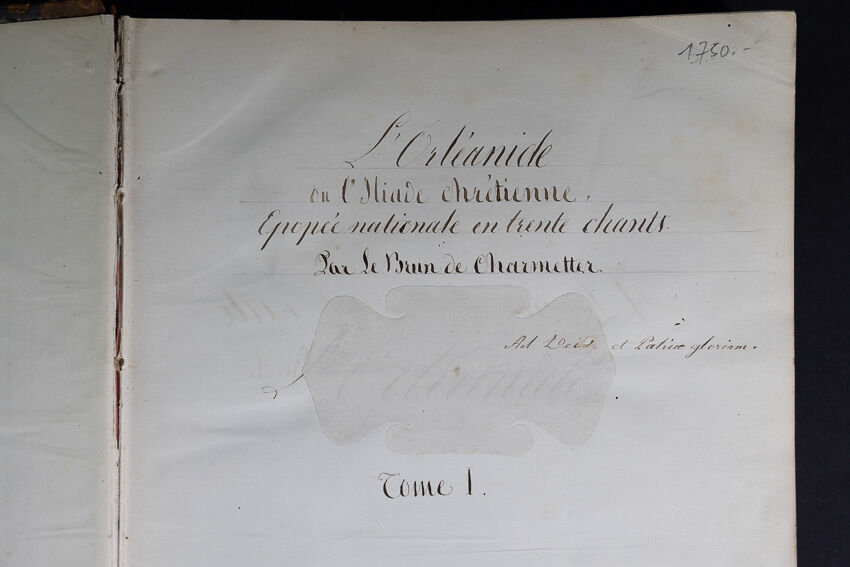 1750.-
L'Orléanide
ou l'Iliade chrétienne,
Epopée nationale en trente chants.
Par Le Brun de Charmetter.
Ad Dei et Patriæ gloriam.
Tome I.